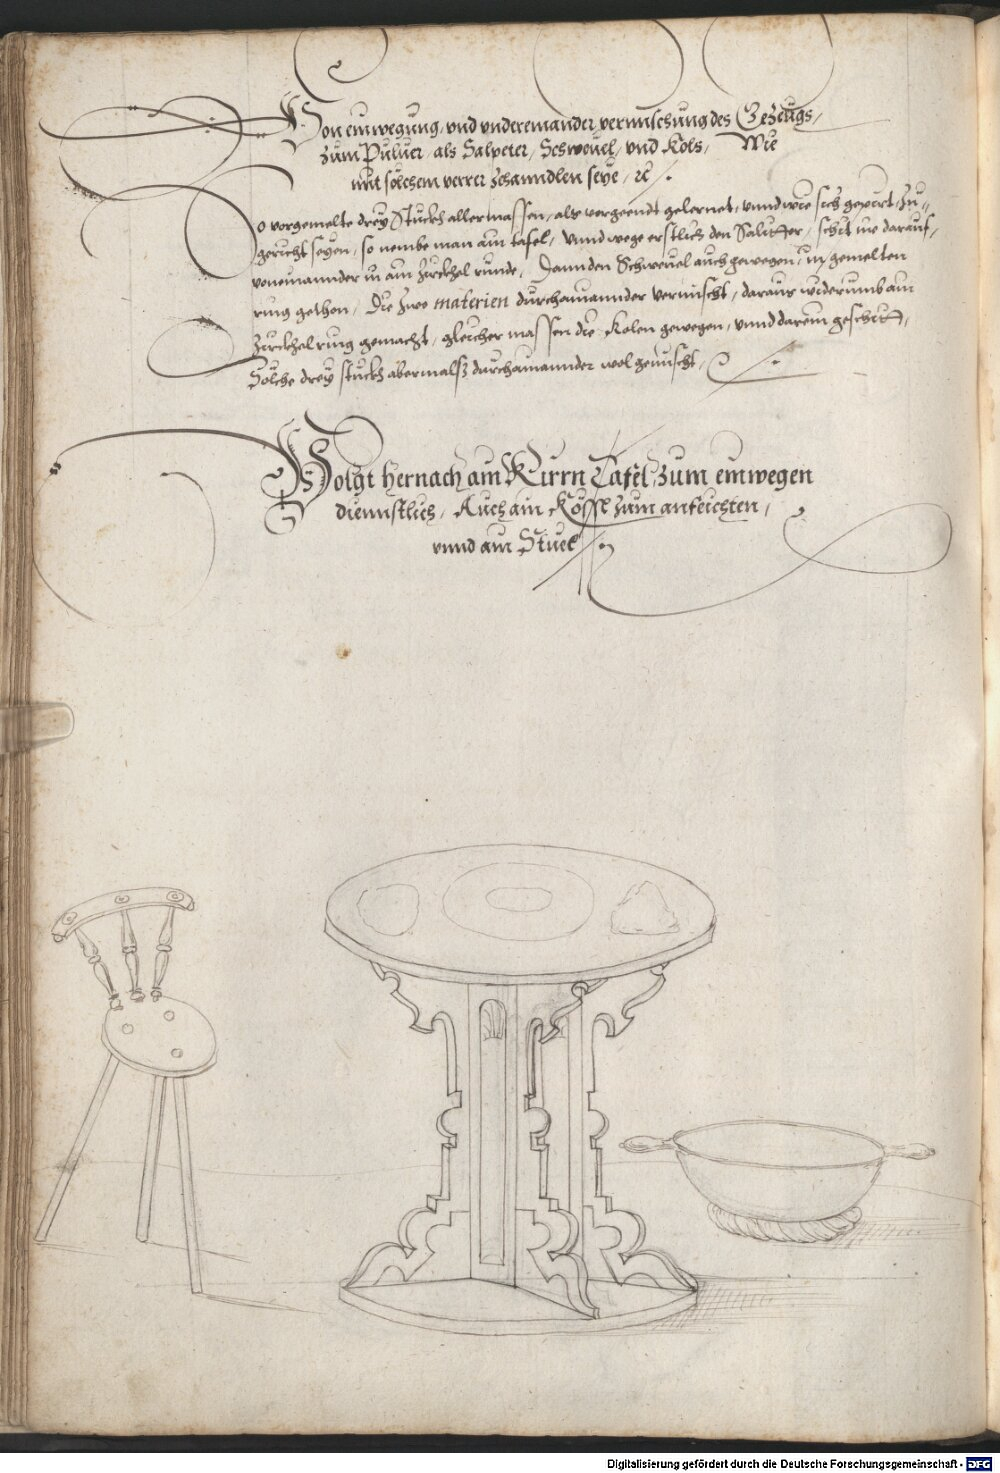 Von einwegung, vnd vndereinander vermischung des Gezeugs,
zum Puluer, als Salpeter, Schweuel, vnd Kols, Wie
mit solchem verrer zehanndlen seye, ꝛc
So vorgemelte drey Stuckh allermassen, als vorgeendt gelernet, vnnd wie sichs gepürt, zu,,
gericht seyen, so nembe man ain tafel, vnnd wege erstlich den Salitter, schit ine darauf,
voneinannder in ain zirckhel runde, Dann den Schweuel auch gewegen, in gemelten
ring gethon, Die zwo materien durchainannder vermischt, daraus widerumb ain
zirckhel ring gemacht, gleicher massen die Kolen gewegen, vnnd darein geschitt,
Solche drey stuckh abermalß durchainannder wol gemischt,
Volgt hernach ain Kirrn Tafel, zum einwegen
diennstlich, Auch ain Kössl zum anfeichten,
vnnd ain Stuel
Digitalisierung gefördert durch die Deutsche Forschungsgemeinschaft - DFG